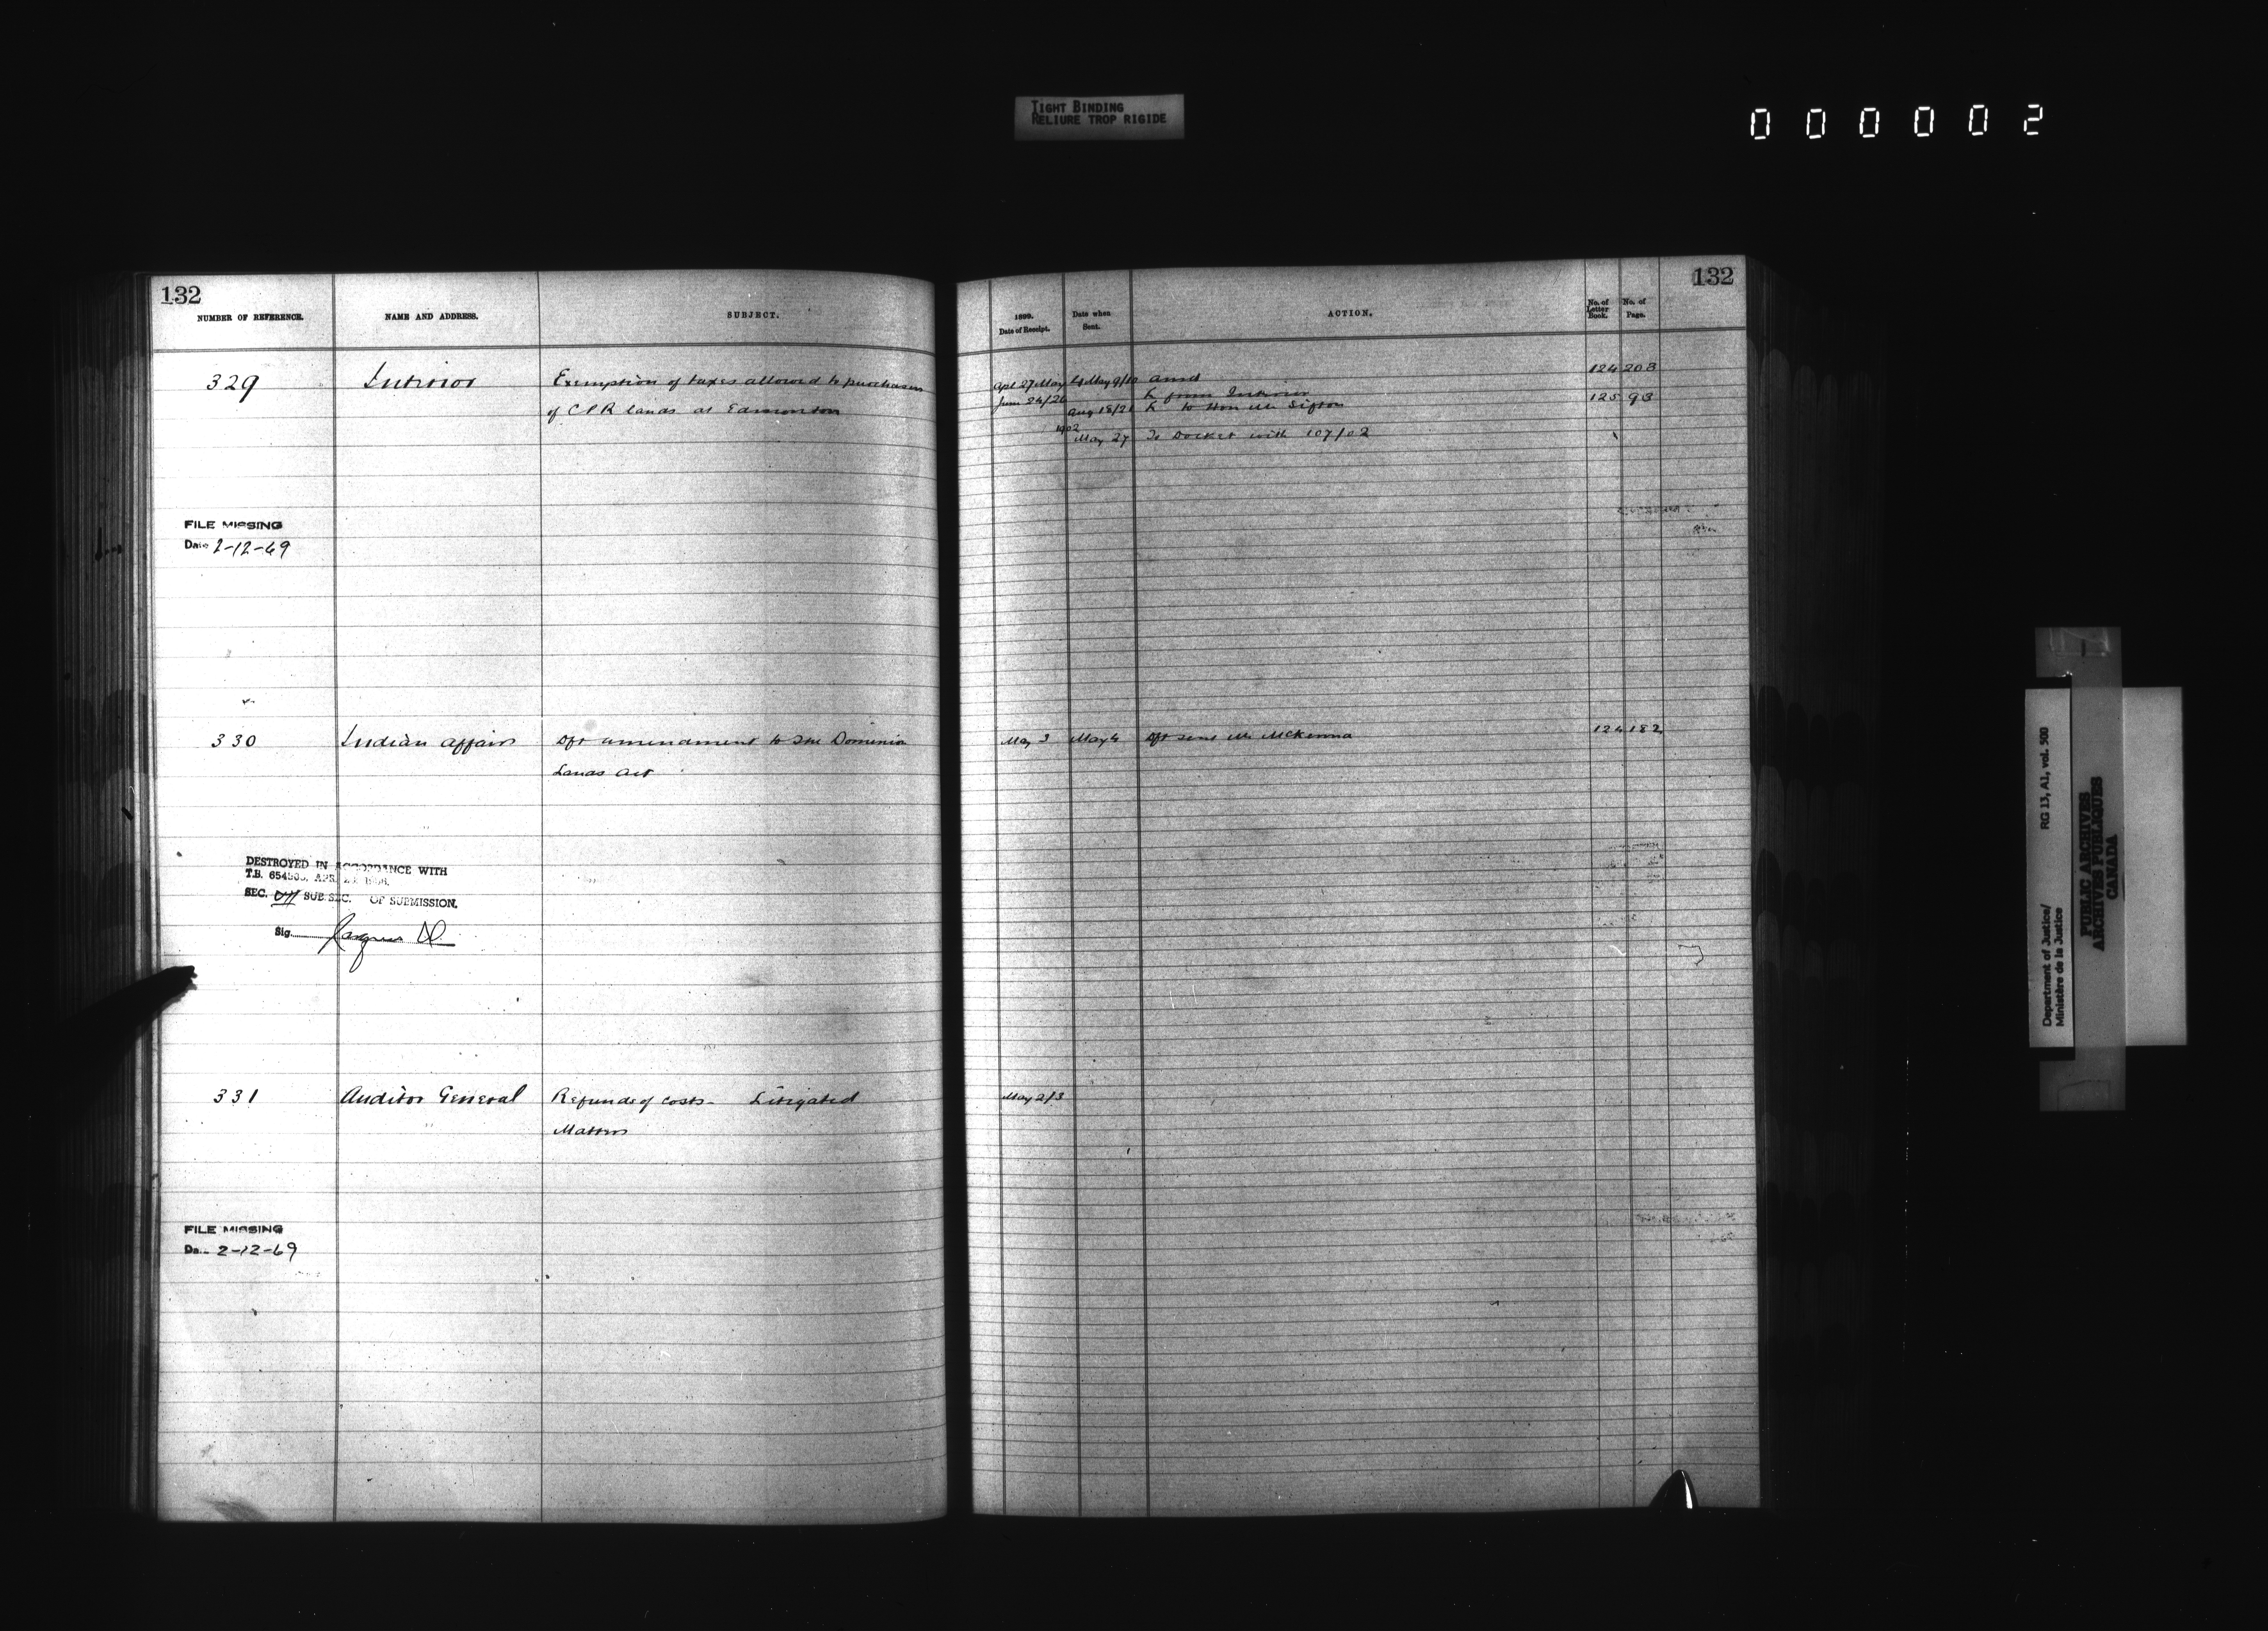 TIGHT BINDING
RELIURE TROP RIGIDE
000002
132
NUMBER OF REFERENCE. NAME AND ADDRESS. SUBJECT.
329 Interior Exemption of taxes allowed to purchasers
of CPR lands at Edmonton
FILE MISSING
Date 2-12-69
330 Indian Affairs Dft amendment to the Dominion
Lands Act
DESTROYED IN ACCORDANCE WITH
T.B. APR.
SEC. SUB SEC. OF SUBMISSION.
Sig.
331 Auditor General Refunds of costs - Litigated
Matters
FILE MISSING
2-12-69
132
1899. Date of Receipt. Date when Sent. ACTION. No. of Letter Book. No. of Page.
Apl 27/May 4 May 9/10 Ansd 124 208
June 24/26 L from Interior
Aug 18/21 L to Hon Mr Sifton 125 93
1902
May 27 To Docket with 107/02
May 3 May 4 Dft sent Mr McKenna 124 182
May 2/3
Department of Justice/ RG 13, A1, vol. 500
Ministère de la Justice
PUBLIC ARCHIVES
ARCHIVES PUBLIQUES
CANADA